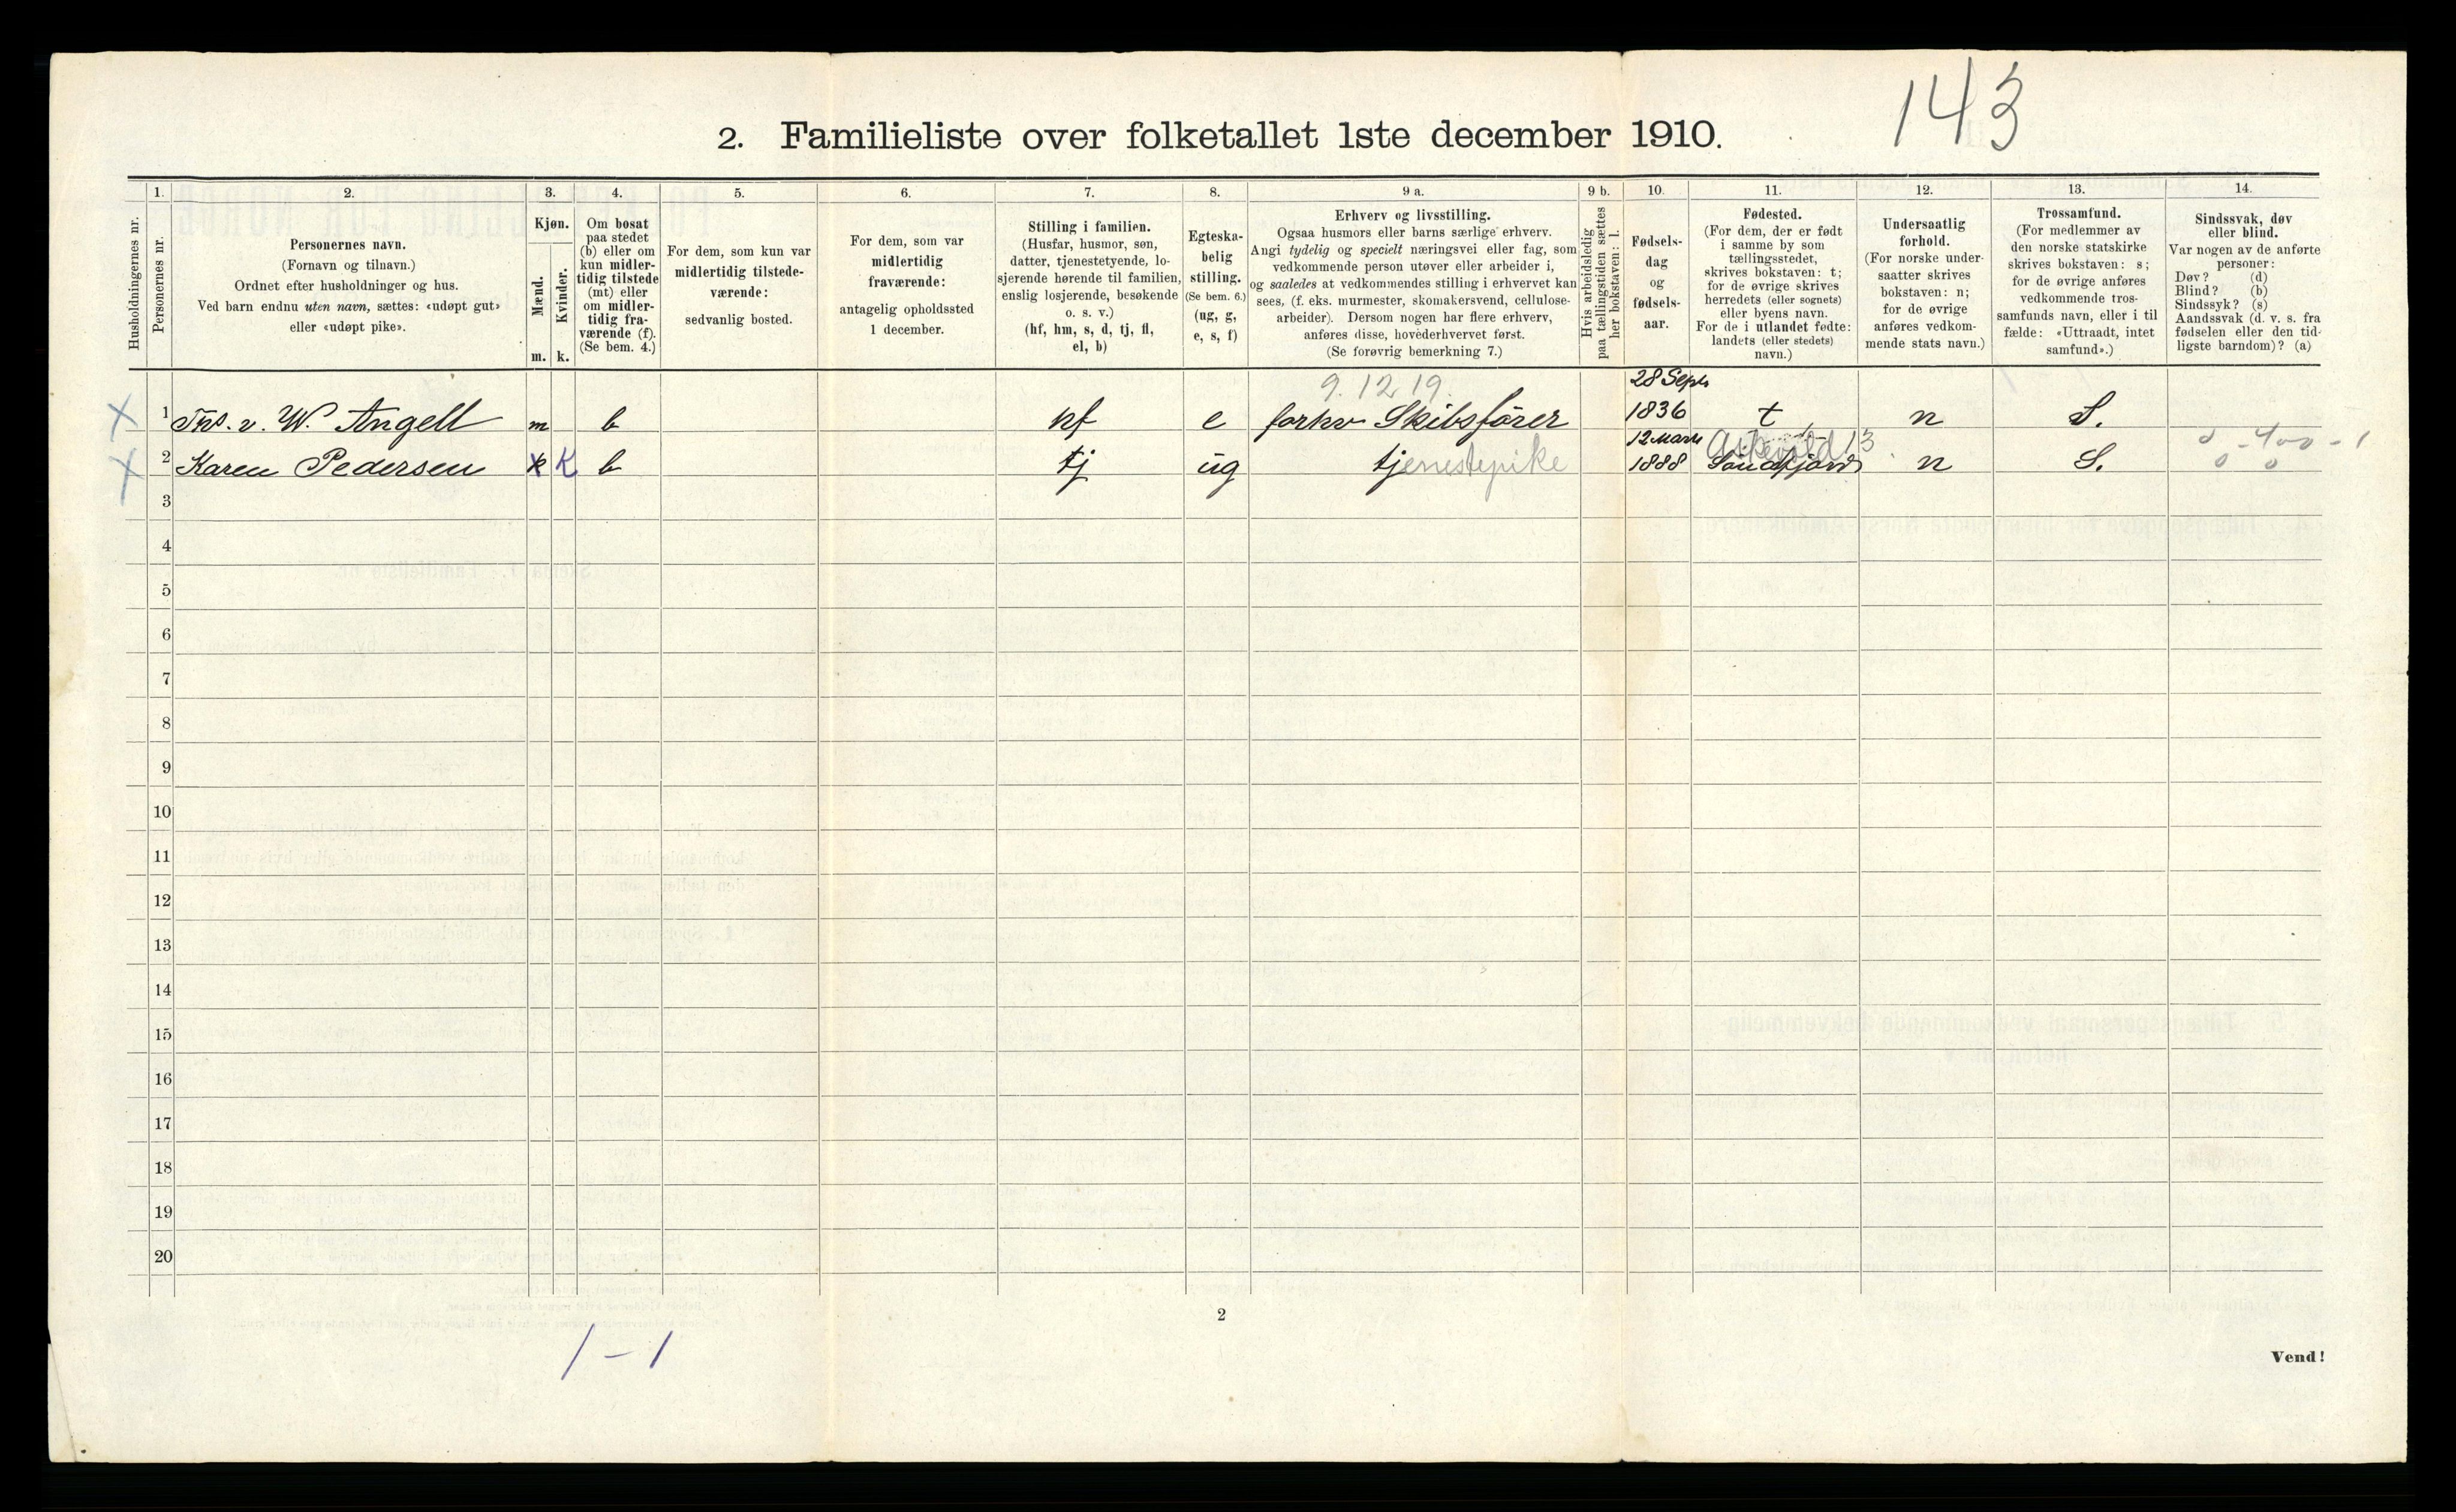 143
2. Familieliste over folketallet 1ste december 1910.
Husholdningernes nr.
1. Personernes nr.
2. Personernes navn.
(Fornavn og tilnavn.)
Ordnet efter husholdninger og hus.
Ved barn endnu uten navn, sættes: «udøpt gut»
eller «udøpt pike».
3. Kjøn.
Mænd. m.
Kvinder. k.
4. Om bosat
paa stedet
(b) eller om
kun midler-
tidig tilstede
(mt) eller
om midler-
tidig fra-
værende (f).
(Se bem. 4.)
5. For dem, som kun var
midlertidig tilstede-
værende:
sedvanlig bosted.
6. For dem, som var
midlertidig
fraværende:
antagelig opholdssted
1 december.
7. Stilling i familien.
(Husfar, husmor, søn,
datter, tjenestetyende, lo-
sjerende hørende til familien,
enslig losjerende, besøkende
o. s. v.)
(hf, hm, s, d, tj, fl,
el, b)
8. Egteska-
belig
stilling.
(Se bem. 6.)
(ug, g,
e, s, f)
9 a. Erhverv og livsstilling.
Ogsaa husmors eller barns særlige erhverv.
Angi tydelig og specielt næringsvei eller fag, som
vedkommende person utøver eller arbeider i,
og saaledes at vedkommendes stilling i erhvervet kan
sees, (f. eks. murmester, skomakersvend, cellulose-
arbeider). Dersom nogen har flere erhverv,
anføres disse, hovederhvervet først.
(Se forøvrig bemerkning 7.)
9 b. Hvis arbeidsledig
paa tællingstiden sættes
her bokstaven: l.
10. Fødsels-
dag
og
fødsels-
aar.
11. Fødested.
(For dem, der er født
i samme by som
tællingsstedet,
skrives bokstaven: t;
for de øvrige skrives
herredets (eller sognets)
eller byens navn.
For de i utlandet fødte:
landets (eller stedets)
navn.)
12. Undersaatlig
forhold.
(For norske under-
saatter skrives
bokstaven: n;
for de øvrige
anføres vedkom-
mende stats navn.)
13. Trossamfund.
(For medlemmer av
den norske statskirke
skrives bokstaven: s;
for de øvrige anføres
vedkommende tros-
samfunds navn, eller i til
fælde: «Uttraadt, intet
samfund».)
14. Sindssvak, døv
eller blind.
Var nogen av de anførte
personer:
Døv? (d)
Blind? (b)
Sindssyk? (s)
Aandssvak (d. v. s. fra
fødselen eller den tid-
ligste barndom)? (a)
9.12.19. 28 Sept
X 1 v. W. Angell m b hf e forhv Skibsfører 1836 t n S.
12 Marts Askevold 13
X 2 Karen Pedersen k K b tj ug tjenestepike 1888 Søndfjord n S.
3
4
5
6
7
8
9
10
11
12
13
14
15
16
17
18
19
20
2
1 - 1
Vend!